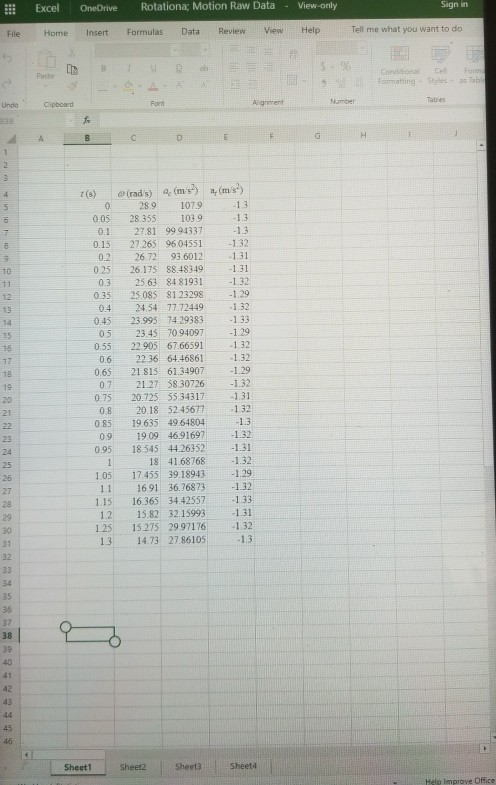 Excel OneDrive Rotationa; Motion Raw Data - View-only Sign in
File Home Insert Formulas Data Review View Help Tell me what you want to do
Paste
B I U D ab
A
$ - %
Conditional Cell
Formatting - Styles - as Table
Undo Clipboard Font Alignment Number Tables
B38 fx
A B C D E F G H I J
1
2
3
4 t (s) ω (rad/s) ac (m/s²) at (m/s²)
5 0 28.9 107.9 -1.3
6 0.05 28.355 103.9 -1.3
7 0.1 27.81 99.94337 -1.3
8 0.15 27.265 96.04551 -1.32
9 0.2 26.72 93.6012 -1.31
10 0.25 26.175 88.48349 -1.31
11 0.3 25.63 84.81931 -1.32
12 0.35 25.085 81.23298 -1.29
13 0.4 24.54 77.72449 -1.32
14 0.45 23.995 74.29383 -1.33
15 0.5 23.45 70.94097 -1.29
16 0.55 22.905 67.66591 -1.32
17 0.6 22.36 64.46861 -1.32
18 0.65 21.815 61.34907 -1.29
19 0.7 21.27 58.30726 -1.32
20 0.75 20.725 55.34317 -1.31
21 0.8 20.18 52.45677 -1.32
22 0.85 19.635 49.64804 -1.3
23 0.9 19.09 46.91697 -1.32
24 0.95 18.545 44.26352 -1.31
25 1 18 41.68768 -1.32
26 1.05 17.455 39.18943 -1.29
27 1.1 16.91 36.76873 -1.32
28 1.15 16.365 34.42557 -1.33
29 1.2 15.82 32.15993 -1.31
30 1.25 15.275 29.97176 -1.32
31 1.3 14.73 27.86105 -1.3
32
33
34
35
36
37
38
39
40
41
42
43
44
45
46
Sheet1 Sheet2 Sheet3 Sheet4
Help Improve Office